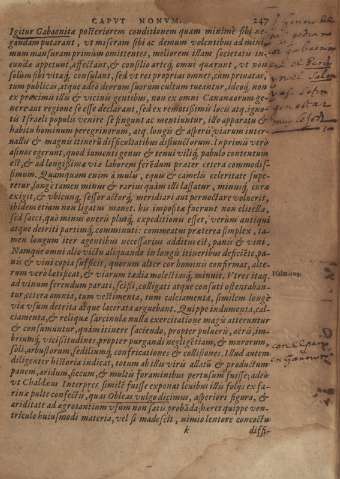 CAPUT NONUM. 247
Igitur Gabaonitæ posteriorem conditionem quam minimè sibi ne-
gandam putarant, ut miseram sibi ac demum volentibus ad mini-
mum mansuram primùm omittentes, meliorem illam societatis in-
eundæ appetunt, affectant, & consilio arteq́; omni quærunt, ut non
solùm sibi vitaq́; consulant, sed ut res proprias omneis, cùm privatas,
tum publicas, atque adeò deorum suorum cultum tueantur, ideoq́; non
ex proximis illis & vicinis gentibus, non ex omni Cananæorum ge-
nere aut regione se esse declarant, sed ex remotissimis locis atq́; igno-
tis Israeli populis venire se fingunt ac mentiuntur, idq́; apparatu &
habitu hominum peregrinorum, atq́; longis & asperis viarum inter-
vallis & magnis itinerū difficultatibus distunctorum. In primis verò
asinos egerunt, quod iumenti genus & tenui vilíq́; pabulo contentum
est, & ad longissimæ viæ laborem ferēdum præter cetera commodis-
simum. Quamquam enim à mulis, equis & camelis celeritate supe-
retur, longè tamen minus & rarius quàm illi lassatur, minusq́; cura
exigit, & ubicunq́; sessor actorq́; meridiari aut pernoctare voluerit,
ibidem etiam non ligatus manet. his imposita fuerunt non clitella,
sed sacci, quò minùs oneris plusq́; expeditionis esset, verùm antiqui
atque detriti partimq́; comminuti: commeatus præterea simplex, ta-
men longum iter agentibus necessarius additus est, panis & vini.
Namque omni alio victu aliquando in longis itineribus deficiēte, pa-
nis & vinum copia sufficit, quorum alter cor hominis confirmat, alte-
rum verò lætificat, & viarum tædia molestiasq́; minuit. Utres itaq́;
ad vinum ferendum parati, scissi, colligati atque consuti ostentaban-
tur, cetera omnia, tum vestimenta, tum calciamenta, similem longæ
viæ usum detrita atque lacerata arguebant. Quippe indumenta, cal-
ciamenta, & reliqua sarcinæ nulla exercitatione magis atteruntur
& consumuntur, quàm itinere faciendo, propter pulveris, aeris, im-
briumq́; vicissitudines, propter purgandi negligētiam, & murorum,
soli, arbustorum, sedilium q́; confricationes & collisiones. Illud autem
diligenter historia indicat, totum ab illis viris allatū & productum
panem, aridum, siccum, & multis foraminibus pertusum fuisse; adeò
ut Chaldæus Interpres similē fuisse exponat levibus illis foliis ex fa-
rina pulte confectis, quas Obleas vulgo dicimus, asperiore figura, &
ariditate ad ægrotantium usum non satis probāda; hæret quippe ven-
triculo huiusmodi materia, vel si madesit, nimio lentore concoctu
k diffi-